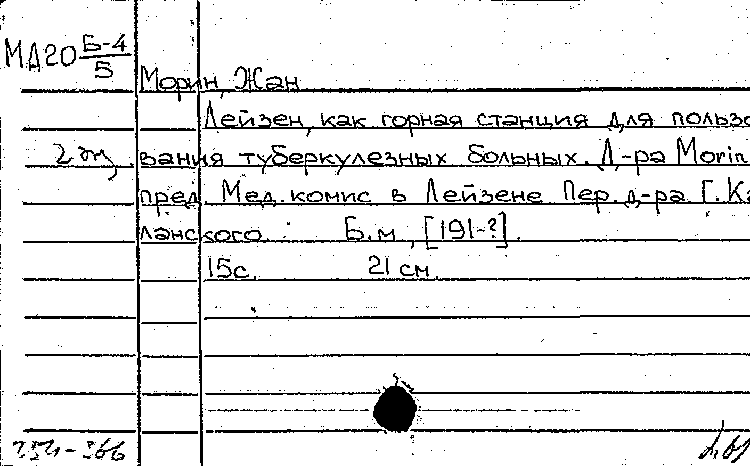 МА20 Б-4/5
Морин, Жан
Лейзен, как горная станция для пользо
2 эк. вания туберкулезных больных. Д-ра Morin
пред. Мед. комис в Лейзене Пер. д-ра Г. Ка
ланского. Б.м., [191-?].
15с. 21 см.
354-366